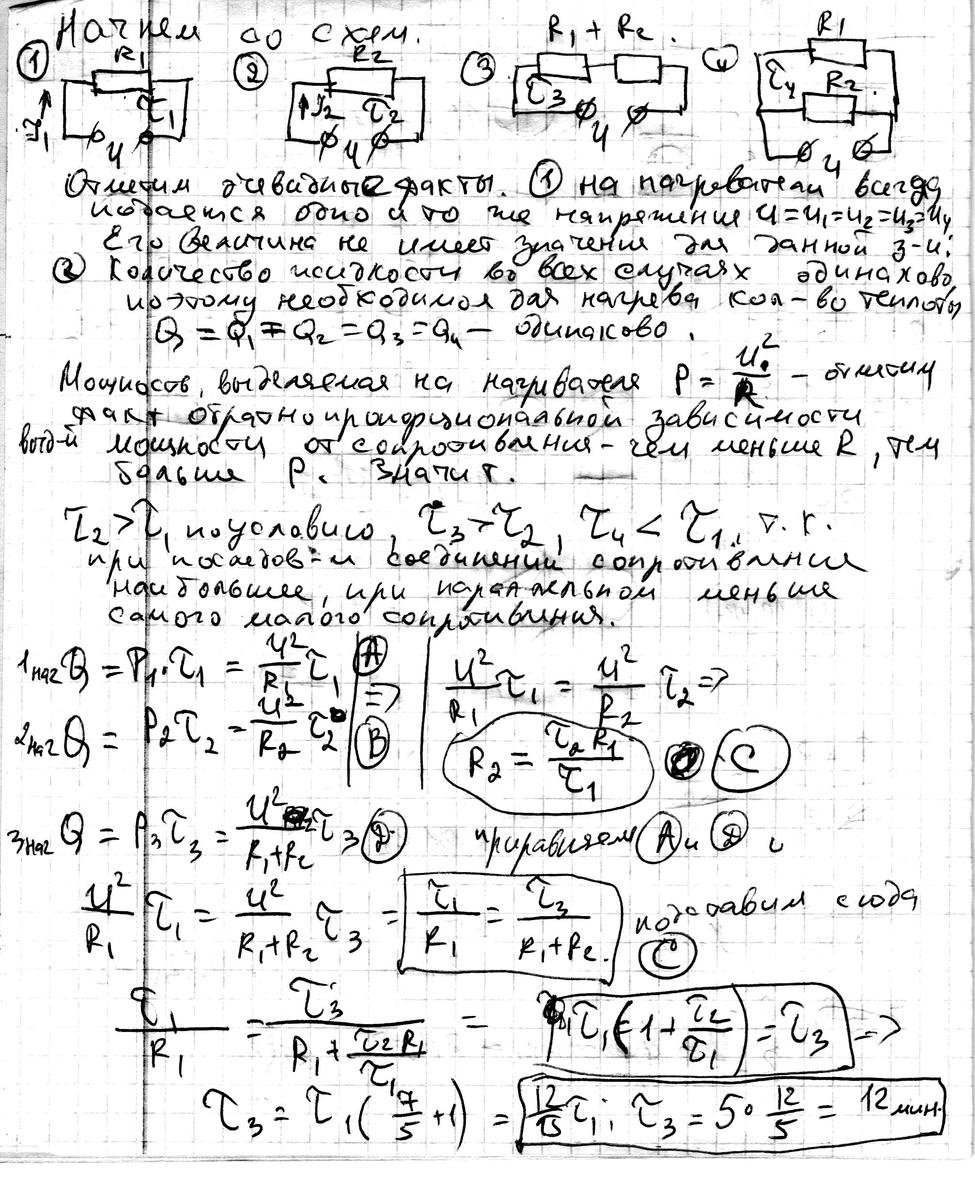 Начнем со схем.
① R₁ τ₁ I₁ U ② R₂ I₂ τ₂ U ③ R₁ + R₂ . τ₃ U ④ R₁ τ₄ R₂ U
Отметим очевидные факты. ① на нагреватели всегда
подается одно и то же напряжение U=U₁=U₂=U₃=U₄.
Его величина не имеет значения для данной з-и.
② Количество жидкости во всех случаях одинаково,
поэтому необходимое для нагрева кол-во теплоты
Q = Q₁ = Q₂ = Q₃ = Q₄ — одинаково.
Мощность, выделяемая на нагревателе P = U²/R – отметим
факт обратнопропорциональной зависимости
мощности от сопротивления – чем меньше R, тем
больше P. Значит.
τ₂ > τ₁ по условию, τ₃ > τ₂, τ₄ < τ₁, т.к.
при последов-м соединении сопротивление
наибольшее, при параллельном меньше
самого малого сопротивления.
1наг Q = P₁·τ₁ = U²/R₁ τ₁ Ⓐ => U²/R₁ τ₁ = U²/R₂ τ₂ =>
2наг Q = P₂τ₂ = U²/R₂ τ₂ Ⓑ R₂ = τ₂R₁/τ₁ Ⓒ
3наг Q = P₃τ₃ = U²/(R₁+R₂) τ₃ Ⓓ приравняем Ⓐ и Ⓓ и
U²/R₁ τ₁ = U²/(R₁+R₂) τ₃ = τ₁/R₁ = τ₃/(R₁+R₂). подставим сюда Ⓒ
τ₁/R₁ = τ₃/(R₁ + τ₂R₁/τ₁) = τ₁(1 + τ₂/τ₁) = τ₃ =>
τ₃ = τ₁(7/5 + 1) = 12/5 τ₁; τ₃ = 5·12/5 = 12 мин.